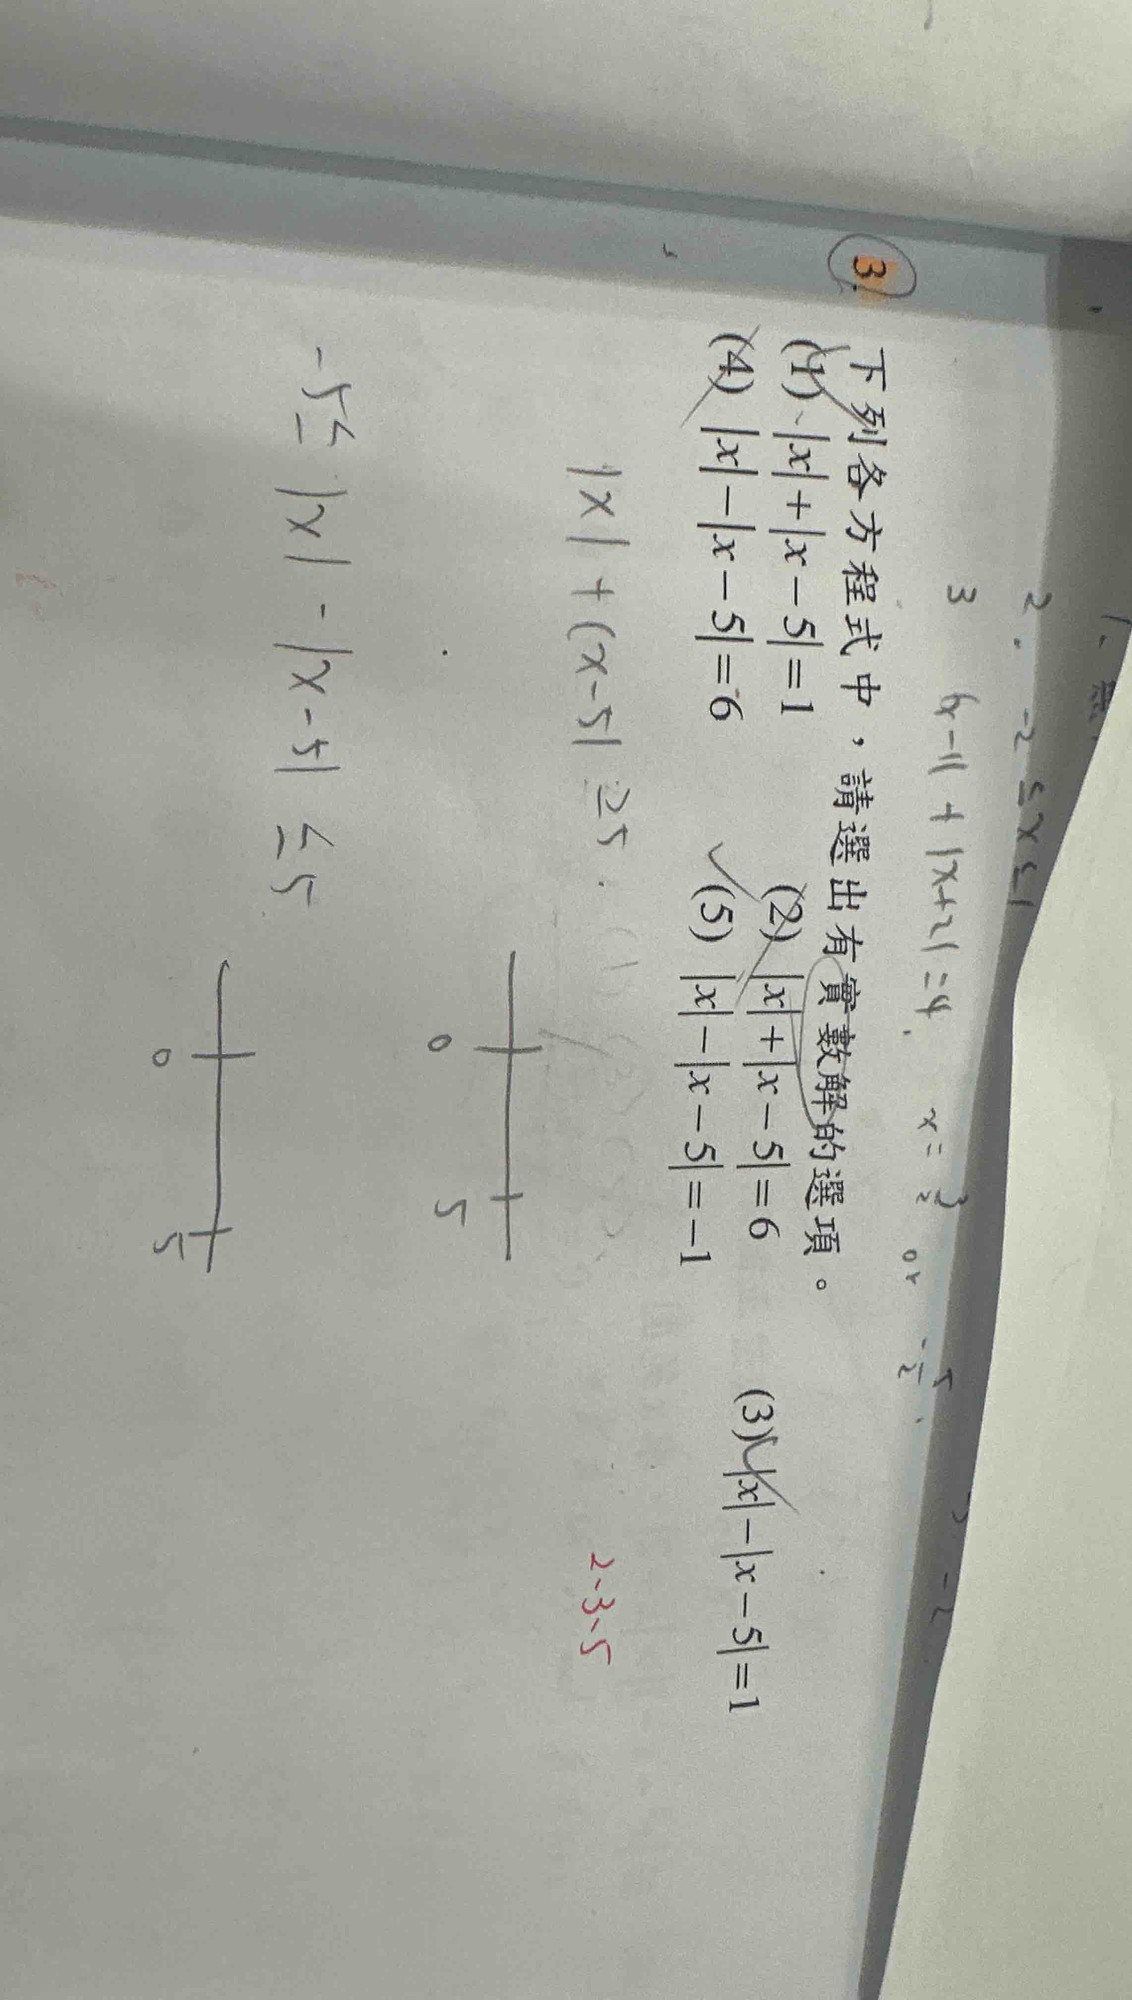 2. -2 ≤ x ≤ 1
3 |x-1| + |x+2| = 4. x = 3/2 or -5/2.
3. 下列各方程式中，請選出有實數解的選項。
(1) |x|+|x-5|=1 (2) |x|+|x-5|=6 (3) |x|-|x-5|=1
(4) |x|-|x-5|=6 (5) |x|-|x-5|=-1
|x| + |x-5| ≥ 5.
2、3、5
0 5
-5 ≤ |x| - |x-5| ≤ 5
0 5